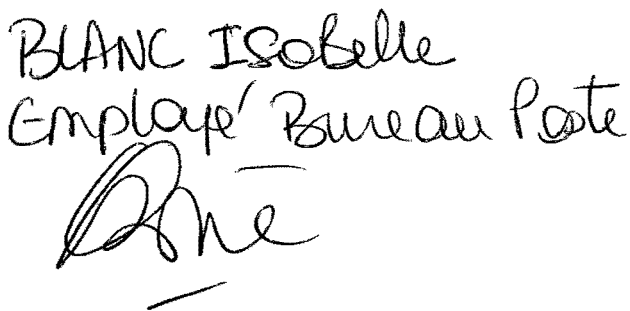 BLANC ISoBelle
Employé Bureau Poste